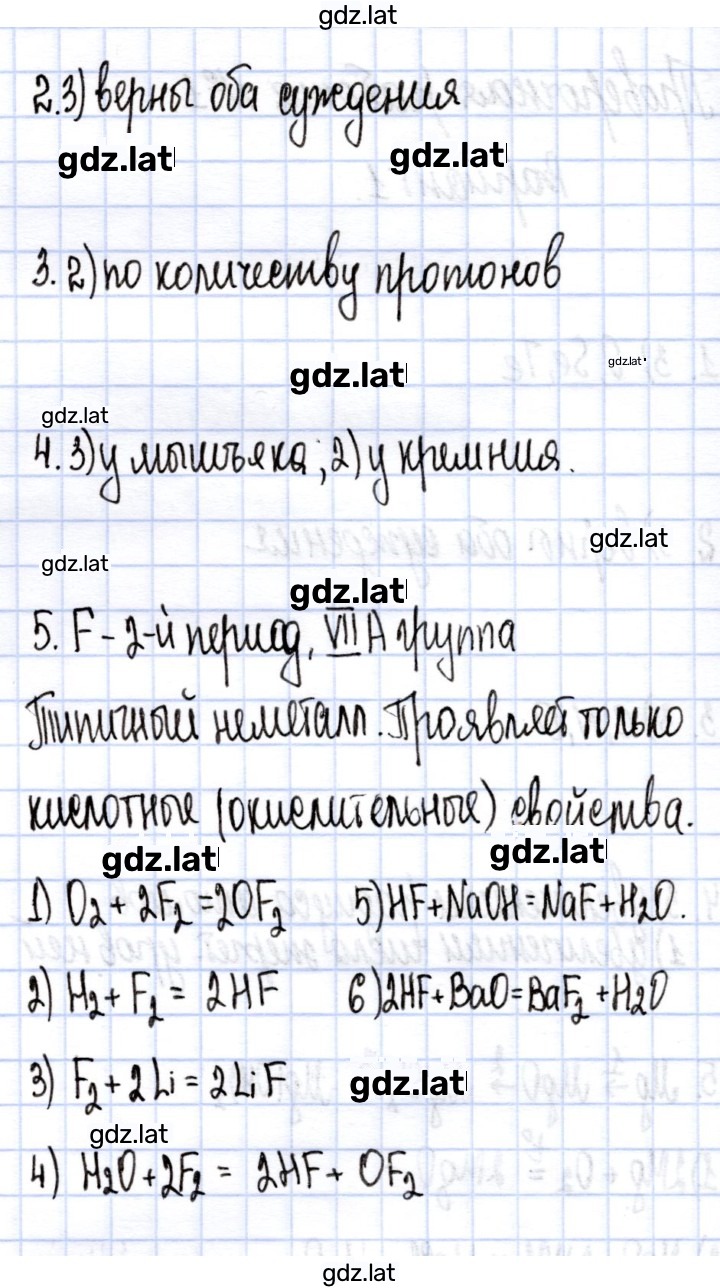 gdz.lat
2.3) верны оба суждения
gdz.lat gdz.lat
3. 2) по количеству протонов
gdz.lat
gdz.lat
gdz.lat
4. 3) у мышьяка; 2) у кремния.
gdz.lat
gdz.lat
gdz.lat
5. F - 2-й период, VII А группа
Типичный неметалл. Проявляет только
кислотные (окислительные) свойства.
gdz.lat gdz.lat
1) O₂ + 2F₂ = 2OF₂ 5) HF + NaOH = NaF + H₂O.
2) H₂ + F₂ = 2HF 6) 2HF + BaO = BaF₂ + H₂O
3) F₂ + 2Li = 2LiF gdz.lat
gdz.lat
4) H₂O + 2F₂ = 2HF + OF₂
gdz.lat